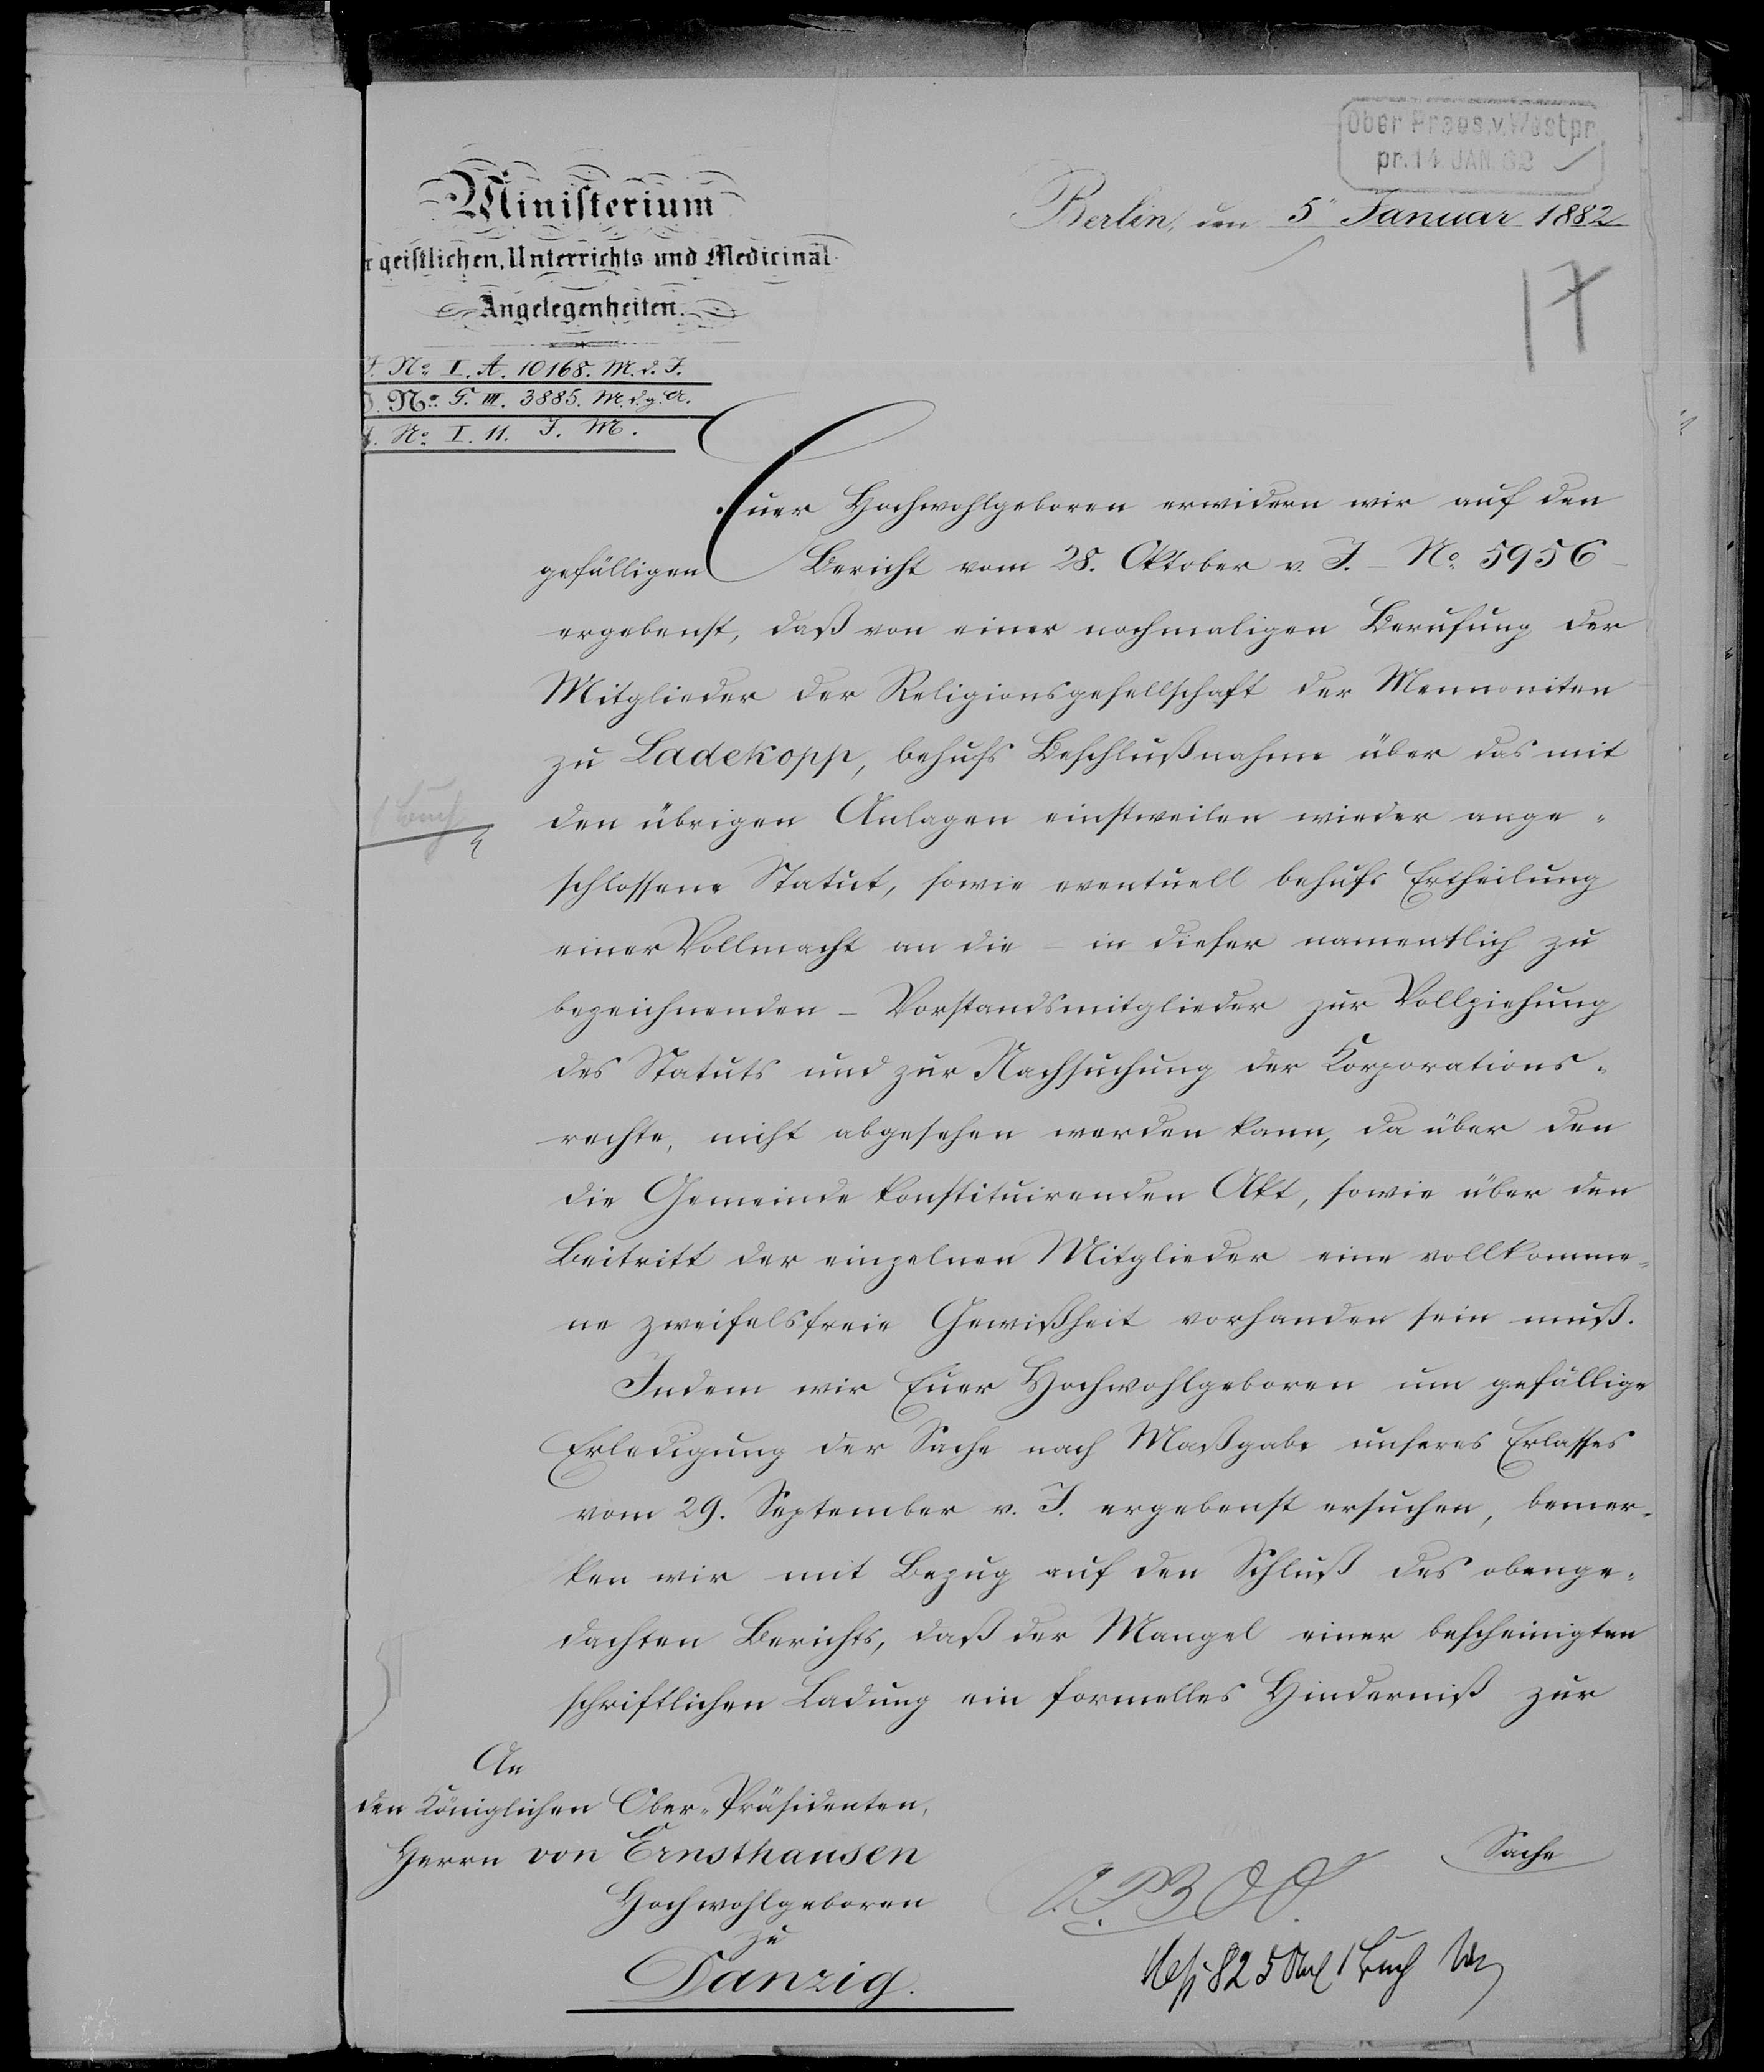 Ober Praes. v. Westpr.
pr. 14 JAN. 82
Ministerium
r geistlichen, Unterrichts- und Medicinal-
Angelegenheiten.
Berlin, den 5ᵗ Januar 1882
17
J. No. I. A. 10168. M. d. J.
J. No. G. III. 3885. M. d. g. A.
J. No. I. 11. J. M.
Euer Hochwohlgeboren erwidern wir auf den
gefälligen Bericht vom 28. Oktober v. J. – No. 5956 –
ergebenst, daß von einer nochmaligen Berufung der
Mitglieder der Religionsgesellschaft der Mennoniten
zu Ladekopp, behufs Beschlußnahme über das mit
den übrigen Anlagen einstweilen wieder ange-
schlossene Statut, sowie eventuell behufs Ertheilung
einer Vollmacht an die – in dieser namentlich zu
bezeichnenden – Vorstandsmitglieder zur Vollziehung
des Statuts und zur Nachsuchung der Korporations-
rechte, nicht abgesehen werden kann, da über den
die Gemeinde konstituirenden Akt, sowie über den
Beitritt der einzelnen Mitglieder eine vollkomme-
ne zweifelsfreie Gewißheit vorhanden sein muß.
Indem wir Euer Hochwohlgeboren um gefällige
Erledigung der Sache nach Maßgabe unseres Erlasses
vom 29. September v. J. ergebenst ersuchen, bemer-
ken wir mit Bezug auf den Schluß des obenge-
dachten Berichts, daß der Mangel einer bescheinigten
schriftlichen Ladung ein formelles Hinderniß zur
Sache
An
den Königlichen Ober-Präsidenten,
Herrn von Ernsthausen
Hochwohlgeboren
zu
Danzig.